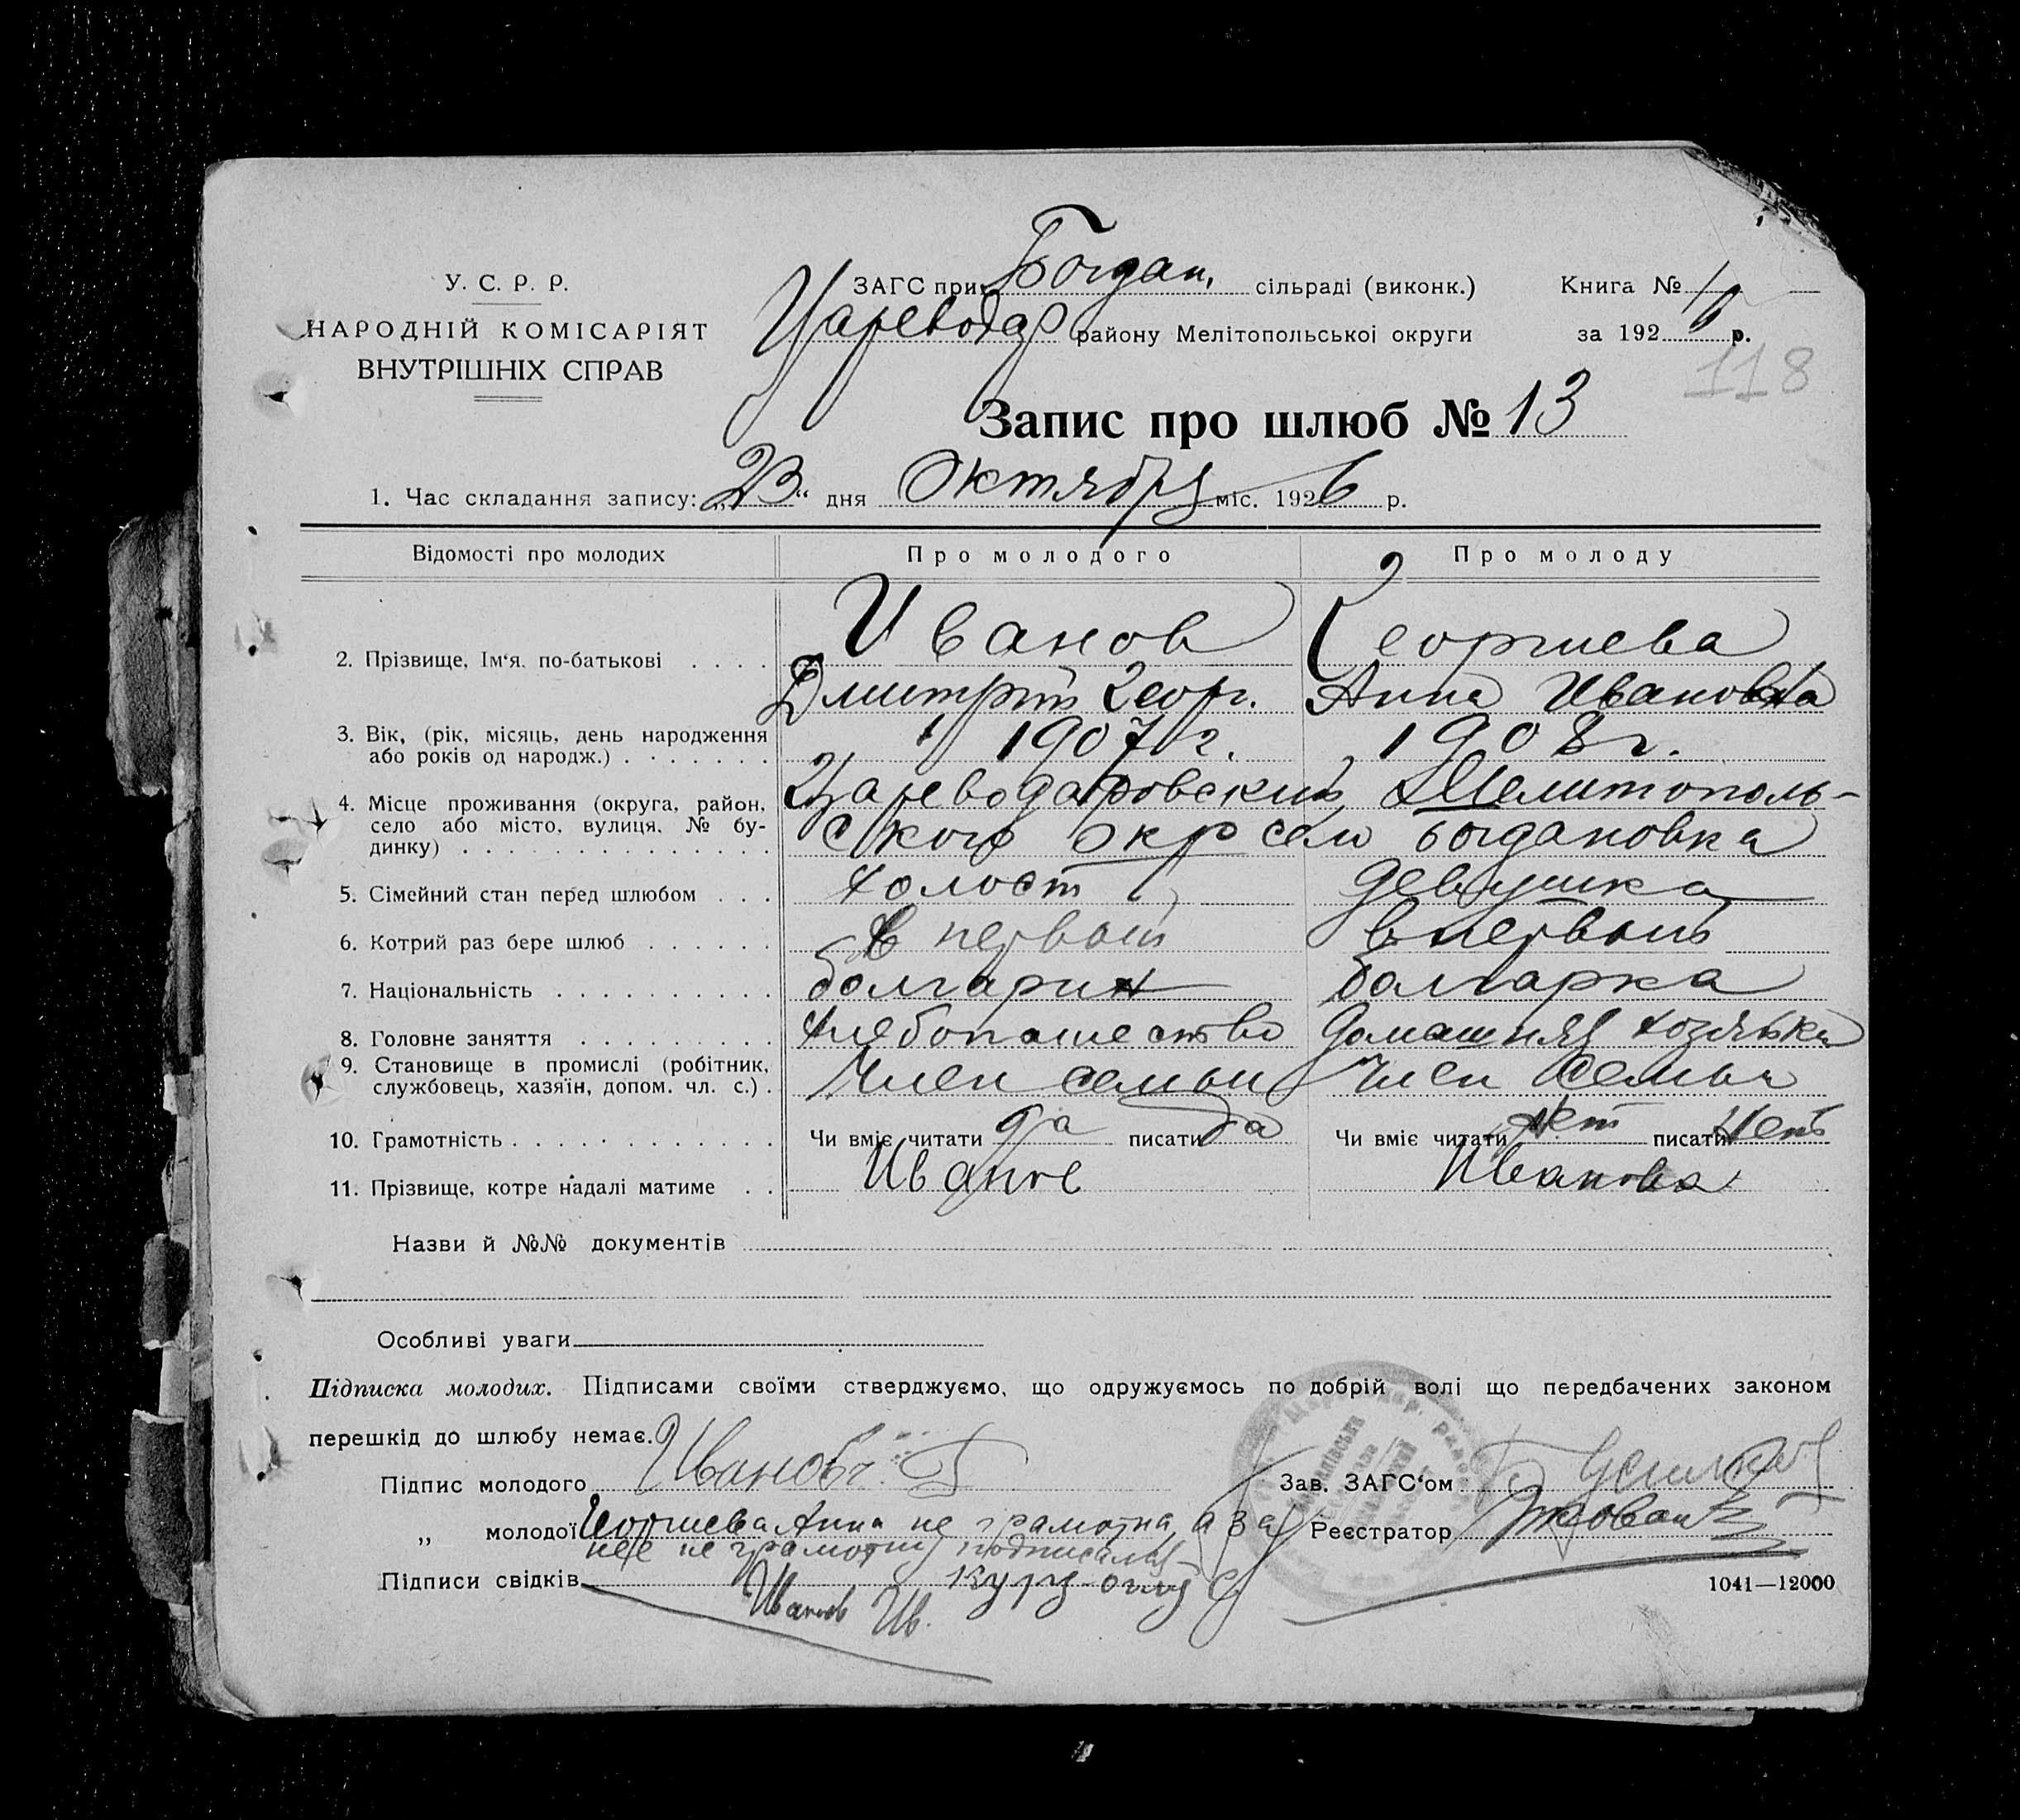 У. С. Р. Р.
НАРОДНІЙ КОМІСАРІЯТ
ВНУТРІШНІХ СПРАВ
ЗАГС при Богдан. сільраді (виконк.)
Царевода р району Мелітопольської округи
Книга №
за 192 6 р.
118
Запис про шлюб № 13
1. Час складання запису: „23“ дня Октября міс. 1926 р.
Відомості про молодих Про молодого Про молоду
2. Прізвище, Ім‘я, по-батькові . . . . Иванов Георгиева
Дмитрій Георг. Анна Ивановна
3. Вік, (рік, місяць, день народження 1907 г. 1908 г.
або років од народж.) . . . . . . .
4. Місце проживання (округа, район, Цареводаровский, Мелитополь-
село або місто, вулиця, № бу- ского окр село Богдановка
динку) . . . . . . . . . . . . . . .
5. Сімейний стан перед шлюбом . . . холост девушка
6. Котрий раз бере шлюб . . . . . . в первый в первый
7. Національність . . . . . . . . . . болгарин болгарка
8. Головне заняття . . . . . . . . . хлебопашество домашняя хозяйка
9. Становище в промислі (робітник, Член семьи Член семьи
службовець, хазяїн, допом. чл. с.) .
10. Грамотність . . . . . . . . . . . . Чи вміє читати да писати да Чи вміє читати нет писати нет
11. Прізвище, котре надалі матиме . . Иванов Иванова
Назви й №№ документів
Особливі уваги
Підписка молодих. Підписами своїми стверджуємо, що одружуємось по добрій волі що передбачених законом
перешкід до шлюбу немає.
Підпис молодого Иванов Зав. ЗАГС‘ом
„ молодої Георгиева Анна не грамотна, а за Реєстратор
нее не грамотну подписался
Підписи свідків Куру-оглу С
Иванов Ив.
1041—12000